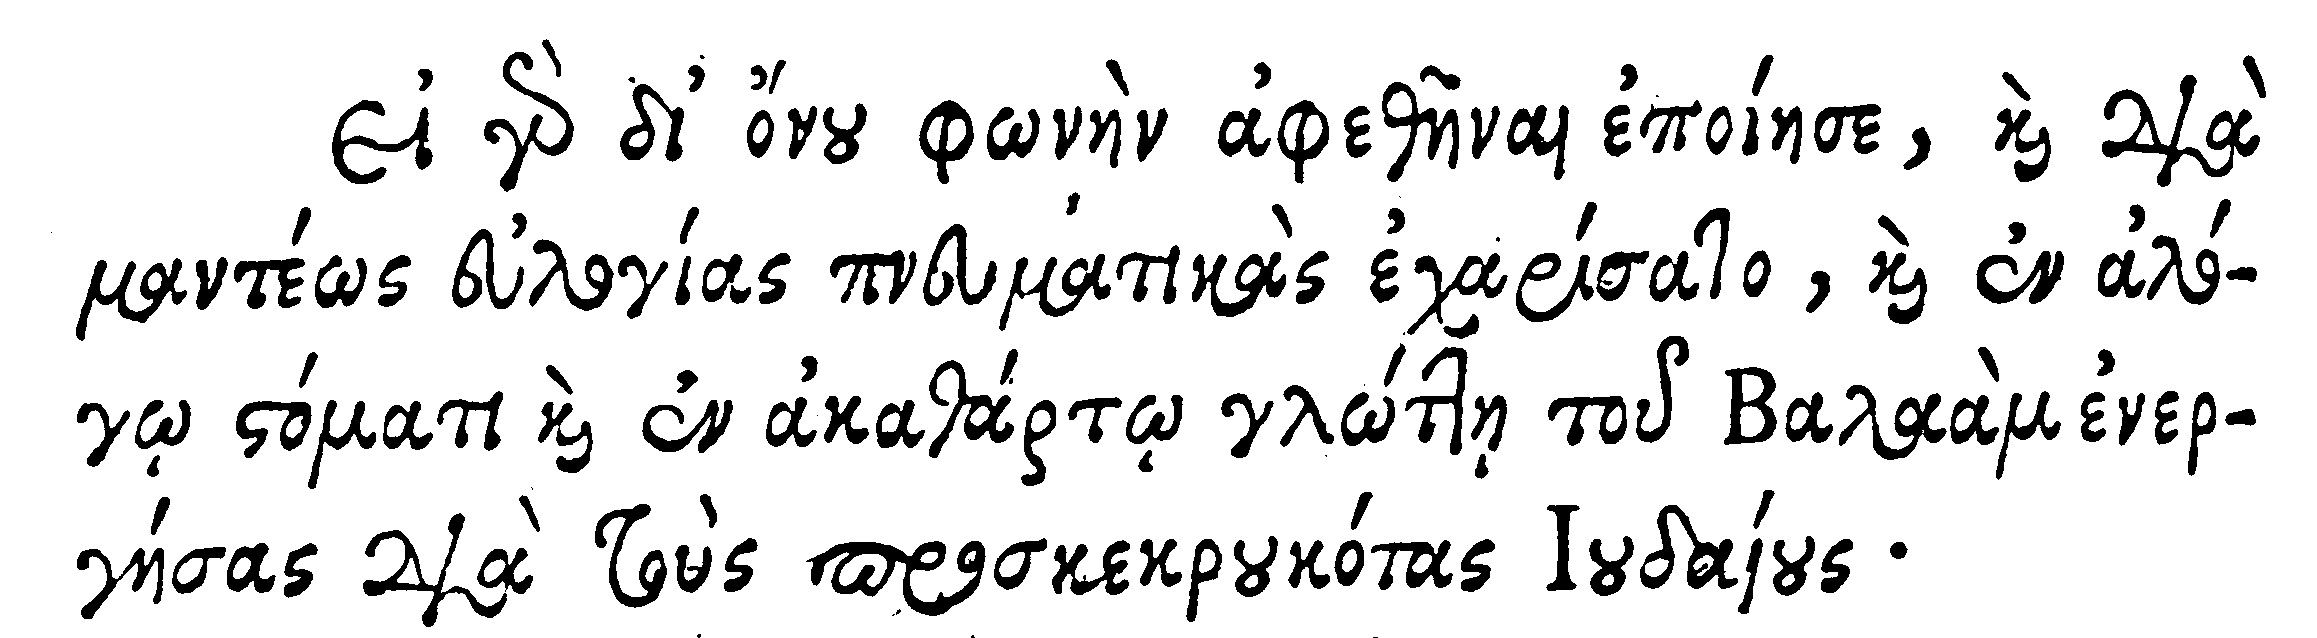 Εἰ γὰρ δι' ὄνου φωνὴν ἀφεθῆναι ἐποίησε, καὶ διὰ
μαντέως εὐλογίας πνευματικὰς ἐχαρίσατο, καὶ ἐν ἀλό-
γῳ στόματι καὶ ἐν ἀκαθάρτῳ γλώττῃ τοῦ Βαλαὰμ ἐνερ-
γήσας διὰ τοὺς προσκεκρουκότας Ἰουδαίους·